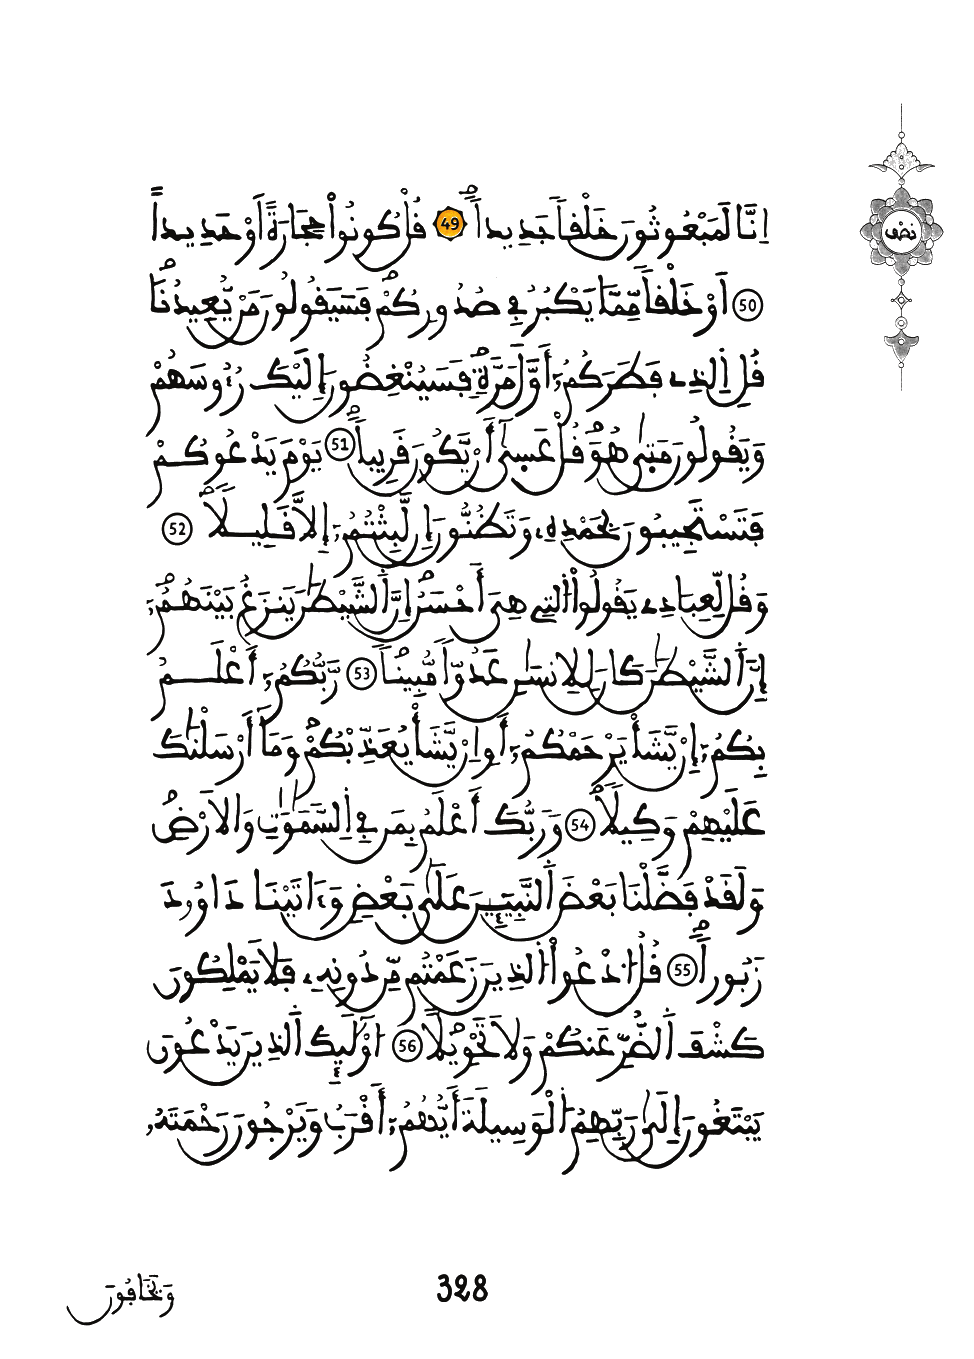 إِنَّا لَمَبْعُوثُونَ خَلْقاً جَدِيداً 49 قُلْ كُونُواْ حِجَارَةً أَوْ حَدِيداً
نصف
50 أَوْ خَلْقاً مِّمَّا يَكْبُرُ فِي صُدُورِكُمْ فَسَيَقُولُونَ مَنْ يُّعِيدُنَا
قُلِ اِلذِے فَطَرَكُمُۥٓ أَوَّلَ مَرَّةٍ فَسَيُنْغِضُونَ إِلَيْكَ رُءُوسَهُمْ
وَيَقُولُونَ مَتىٰ هُوَ قُلْ عَسىٰٓ أَنْ يَّكُونَ قَرِيباً 51 يَوْمَ يَدْعُوكُمْ
فَتَسْتَجِيبُونَ بِحَمْدِهِۦ وَتَظُنُّونَ إِن لَّبِثْتُمُۥٓ إِلاَّ قَلِيلاً 52
وَقُل لِّعِبَادِے يَقُولُواْ اُلتِي هِيَ أَحْسَنُ إِنَّ اَلشَّيْطَٰنَ يَنزَغُ بَيْنَهُمُۥٓ
إِنَّ اَلشَّيْطَٰنَ كَانَ لِلِانسَٰنِ عَدُوّاً مُّبِيناً 53 رَّبُّكُمُۥٓ أَعْلَمُ
بِكُمُۥٓ إِنْ يَّشَأْ يَرْحَمْكُمُۥٓ أَوِ اِنْ يَّشَأْ يُعَذِّبْكُمْ وَمَآ أَرْسَلْنَٰكَ
عَلَيْهِمْ وَكِيلاً 54 وَرَبُّكَ أَعْلَمُ بِمَن فِي اِلسَّمَٰوَٰتِ وَالَارْضِ
وَلَقَدْ فَضَّلْنَا بَعْضَ اَلنَّبِيٓـِٕينَ عَلَىٰ بَعْضٍ وَءَاتَيْنَا دَاوُۥدَ
زَبُوراً 55 قُلُ اُدْعُواْ اُلذِينَ زَعَمْتُم مِّن دُونِهِۦ فَلَا يَمْلِكُونَ
كَشْفَ اَلضُّرِّ عَنكُمْ وَلَا تَحْوِيلاً 56 اُوْلَٰٓئِكَ اَلذِينَ يَدْعُونَ
يَبْتَغُونَ إِلَىٰ رَبِّهِمُ اُلْوَسِيلَةَ أَيُّهُمُۥٓ أَقْرَبُ وَيَرْجُونَ رَحْمَتَهُۥ
وَيَخَافُونَ
328